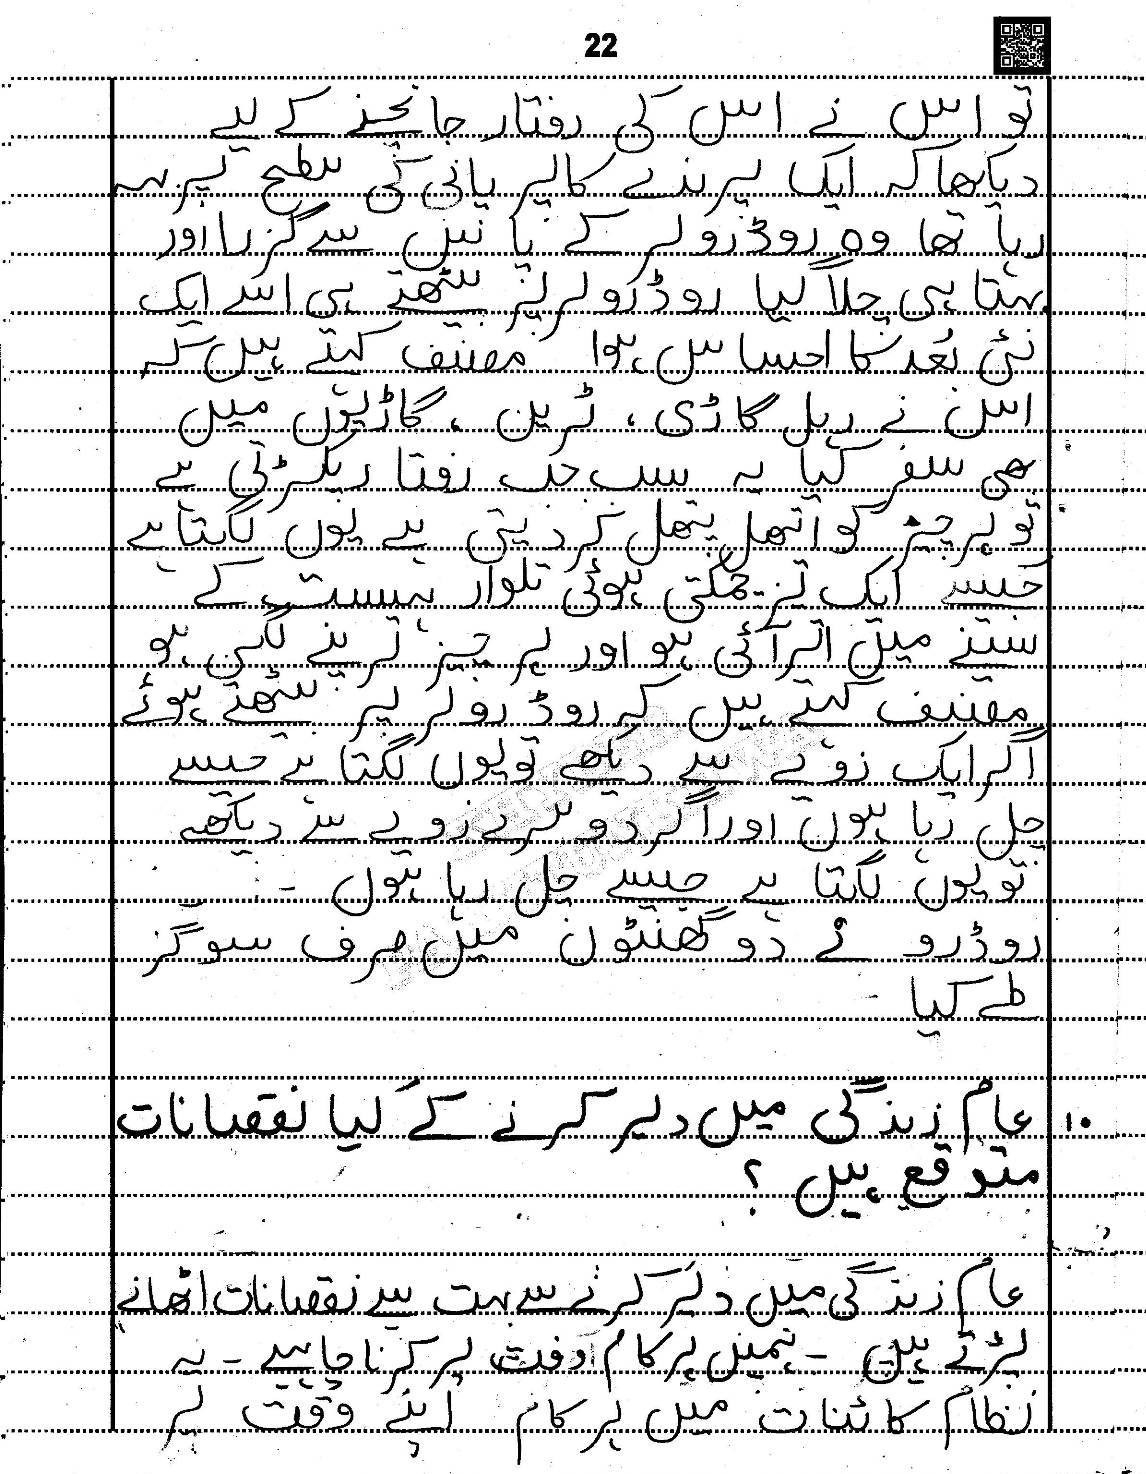 22
تو اس نے اس کی رفتار جانچنے کے لیے
دیکھا کہ ایک پرندے کا پر پانی کی سطح پر بہہ
رہا تھا وہ روڈ رولر کے پا نیں سے گزرا اور
بہتا ہی چلا گیا روڈ رولر پر بیٹھتے ہی اسے ایک
نئی بُعد کا احساس ہوا مصنف کہتے ہیں کہ
اس نے ریل گاڑی ، ٹرین ، گاڑیوں میں
بھی سفر کیا یہ سب جب رفتا ر پکڑتی ہے
تو ہر چیز کو اتھل پتھل کر دیتی ہے یوں لگتا ہے
جیسے ایک تیز چمکتی ہوئی تلوار ہیست کے
سینے میں اتر آئی ہو اور ہر چیز تڑپنے لگی ہو
مصنف کہتے ہیں کہ روڈ رولر پر بیٹھتے ہوئے
اگر ایک زویے سے دیکھے تو یوں لگتا ہے جیسے
چل رہا ہوں اور اگر دوسرے زویے سے دیکھے
تو یوں لگتا ہے جیسے چل رہا ہوں ۔
روڈ رو نے دو گھنٹوں میں صرف سو گز
طے کیا ۔
۱۰ عام زندگی میں دیر کرنے کے کیا نقصانات
متوقع ہیں ؟
عام زندگی میں دیر کرنے سے بہت سے نقصانات اٹھانے
پڑتے ہیں ۔ ہمیں ہر کام وقت پر کرنا چاہیے ۔ یہ
نظام کائنات میں ہر کام اپنے وقت پر